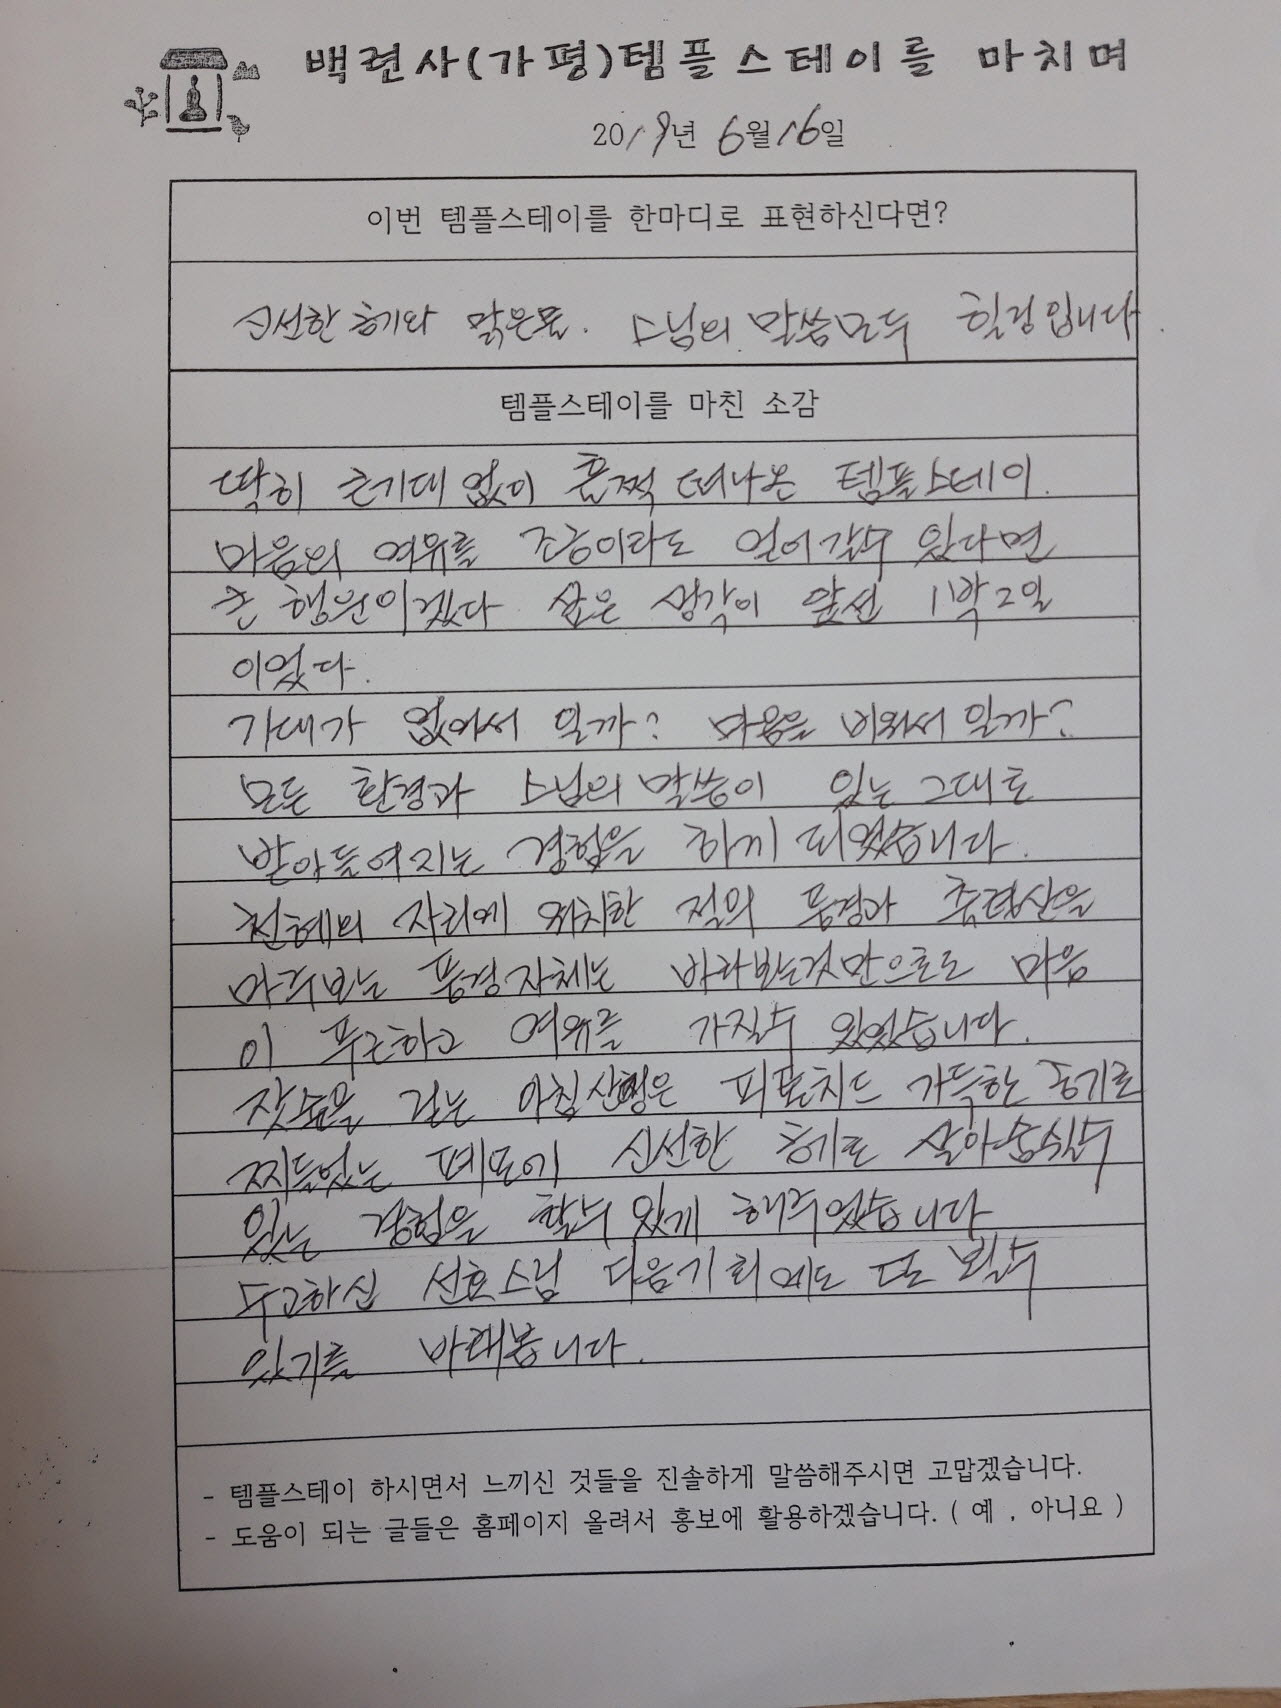 백련사(가평)템플스테이를 마치며
2019년 6월 16일
이번 템플스테이를 한마디로 표현하신다면?
신선한 공기와 맑은물. 스님의 말씀모두 힐링입니다
템플스테이를 마친 소감
딱히 큰기대 없이 훌쩍 떠나온 템플스테이.
마음의 여유를 조금이라도 얻어갈수 있다면
큰 행운이겠다 싶은 생각이 앞선 1박2일
이었다.
기대가 없어서 일까? 마음을 비워서 일까?
모든 환경과 스님의 말씀이 있는 그대로
받아들여지는 경험을 하게 되었습니다.
천혜의 자리에 위치한 절의 풍경과 축령산을
마주보는 풍경자체는 바라보는것만으로도 마음
이 푸근하고 여유를 가질수 있었습니다.
잣숲을 걷는 아침산행은 피톤치드 가득한 공기로
찌들었는 폐포에 신선한 공기로 살아숨쉴수
있는 경험을 할수 있게 해주었습니다
수고하신 선효스님 다음기회에도 또 뵐수
있기를 바래봅니다.
- 템플스테이 하시면서 느끼신 것들을 진솔하게 말씀해주시면 고맙겠습니다.
- 도움이 되는 글들은 홈페이지 올려서 홍보에 활용하겠습니다. ( 예 , 아니요 )